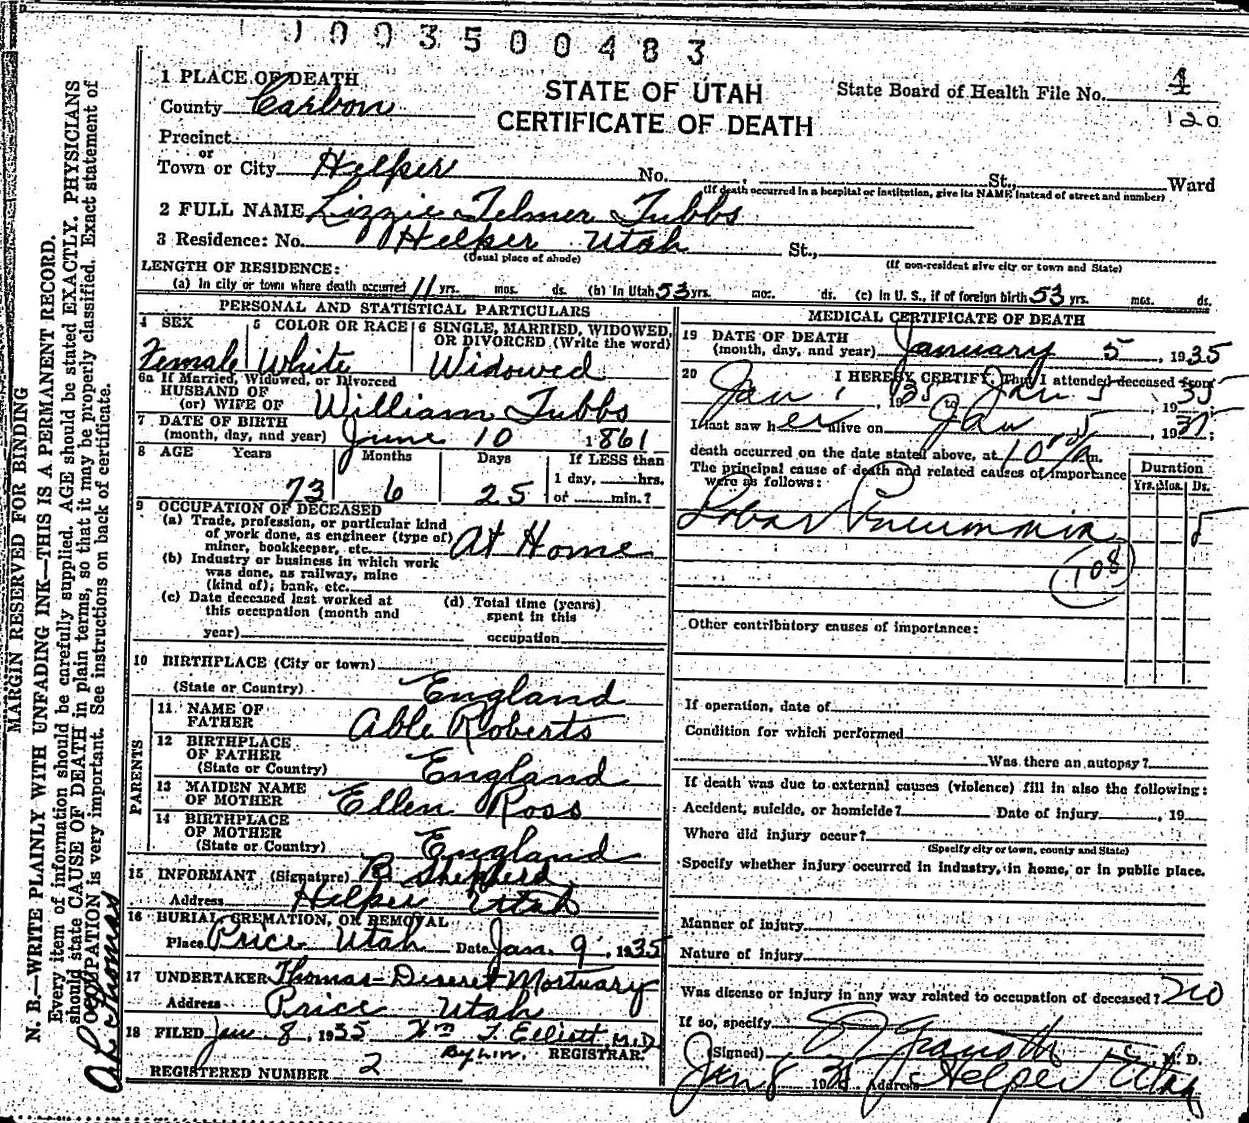 1003500483
1 PLACE OF DEATH
County Carbon
STATE OF UTAH
CERTIFICATE OF DEATH
State Board of Health File No. 4
120
Precinct
or
Town or City Helper No. , St., Ward
(If death occurred in a hospital or institution, give its NAME instead of street and number)
2 FULL NAME Lizzie Telmer Tubbs
3 Residence: No. Helper Utah St.,
(Usual place of abode) (If non-resident give city or town and State)
LENGTH OF RESIDENCE:
(a) In city or town where death occurred 11 yrs. mos. ds. (b) In Utah 53 yrs. mos. ds. (c) In U. S., if of foreign birth 53 yrs. mos. ds.
PERSONAL AND STATISTICAL PARTICULARS
4 SEX 5 COLOR OR RACE 6 SINGLE, MARRIED, WIDOWED,
OR DIVORCED (Write the word)
Female White Widowed
6a If Married, Widowed, or Divorced
HUSBAND OF
(or) WIFE OF William Tubbs
7 DATE OF BIRTH
(month, day, and year) June 10 1861
8 AGE Years Months Days If LESS than
1 day, hrs.
73 6 25 or min.?
9 OCCUPATION OF DECEASED
(a) Trade, profession, or particular kind
of work done, as engineer (type of)
miner, bookkeeper, etc. At Home
(b) Industry or business in which work
was done, as railway, mine
(kind of); bank, etc.
(c) Date deceased last worked at
this occupation (month and
year)
(d) Total time (years)
spent in this
occupation
10 BIRTHPLACE (City or town)
(State or Country) England
PARENTS
11. NAME OF
FATHER Able Roberts
12 BIRTHPLACE
OF FATHER
(State or Country) England
13 MAIDEN NAME
OF MOTHER Ellen Ross
14 BIRTHPLACE
OF MOTHER
(State or Country) England
15 INFORMANT (Signature) B. Shepherd
Address Helper Utah
16 BURIAL, CREMATION, OR REMOVAL
Place Price Utah Date Jan. 9, 1935
17 UNDERTAKER Thomas-Deseret Mortuary
Address Price Utah
18 FILED Jan. 8, 1935 Wm T. Elliott M.D
REGISTRAR.
REGISTERED NUMBER 2
MEDICAL CERTIFICATE OF DEATH
19 DATE OF DEATH
(month, day, and year) January 5, 1935
20 I HEREBY CERTIFY, That I attended deceased from
Jan 1, 1935 to Jan 5, 1935
I last saw her alive on Jan 5, 1935;
death occurred on the date stated above, at m.
The principal cause of death and related causes of importance
were as follows:
Duration
Yrs. Mos. Ds.
Lobar Pneumonia 5
108
Other contributory causes of importance:
If operation, date of
Condition for which performed
Was there an autopsy?
If death was due to external causes (violence) fill in also the following:
Accident, suicide, or homicide? Date of injury , 19
Where did injury occur?
(Specify city or town, county and State)
Specify whether injury occurred in industry, in home, or in public place.
Manner of injury
Nature of injury
Was disease or injury in any way related to occupation of deceased? no
If so, specify
(Signed) M. D.
Jan 8 1935 Address Helper Utah
MARGIN RESERVED FOR BINDING
N. B.—WRITE PLAINLY WITH UNFADING INK—THIS IS A PERMANENT RECORD.
Every item of information should be carefully supplied. AGE should be stated EXACTLY. PHYSICIANS
should state CAUSE OF DEATH in plain terms, so that it may be properly classified. Exact statement of
OCCUPATION is very important. See instructions on back of certificate.
Thomas